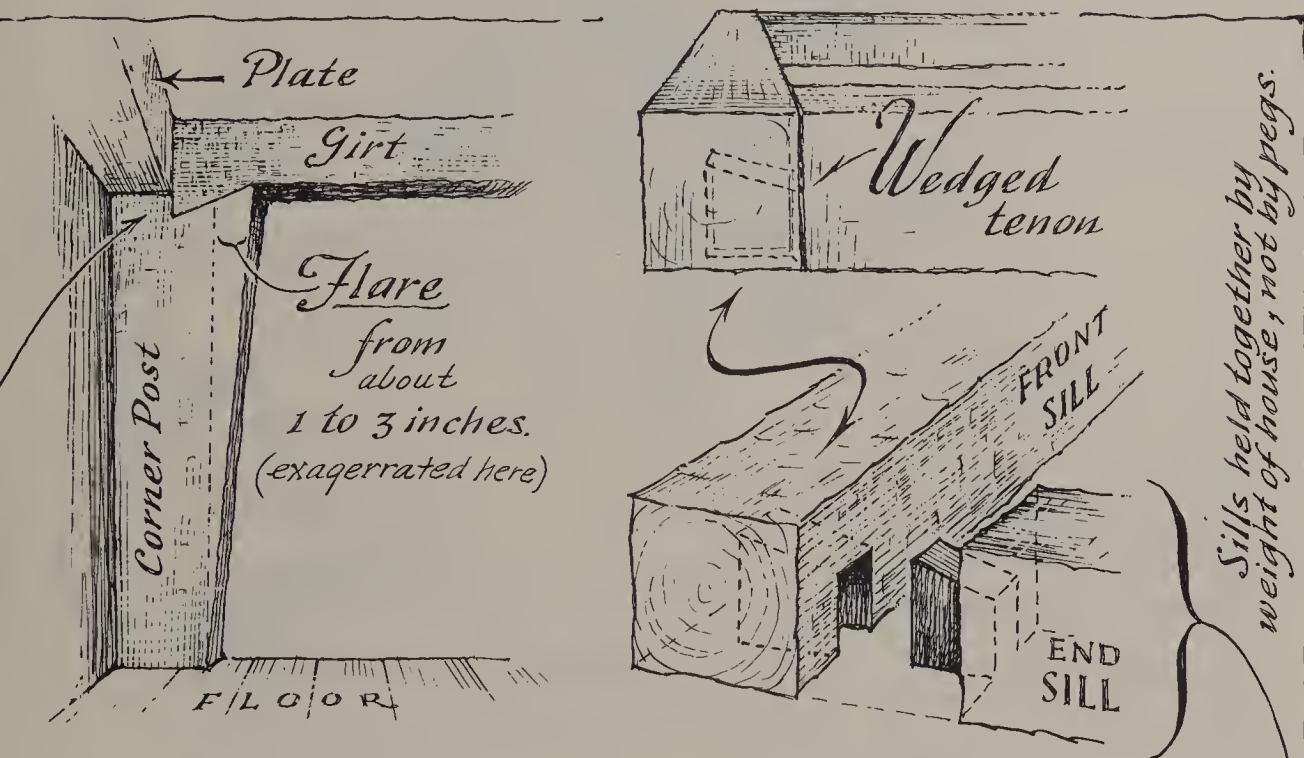 Plate
Girt
Flare
from
about
1 to 3 inches.
(exagerrated here)
Corner Post
FLOOR
Wedged
tenon
FRONT
SILL
END
SILL
Sills held together by
weight of house, not by pegs.